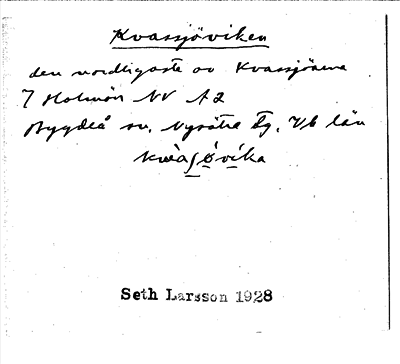 Kvassjöviken
den nordligaste av Kvassjöarna
7 Holmön NV A2
Bygdeå sn. Nysätra tg. Vb län
Seth Larsson 1928